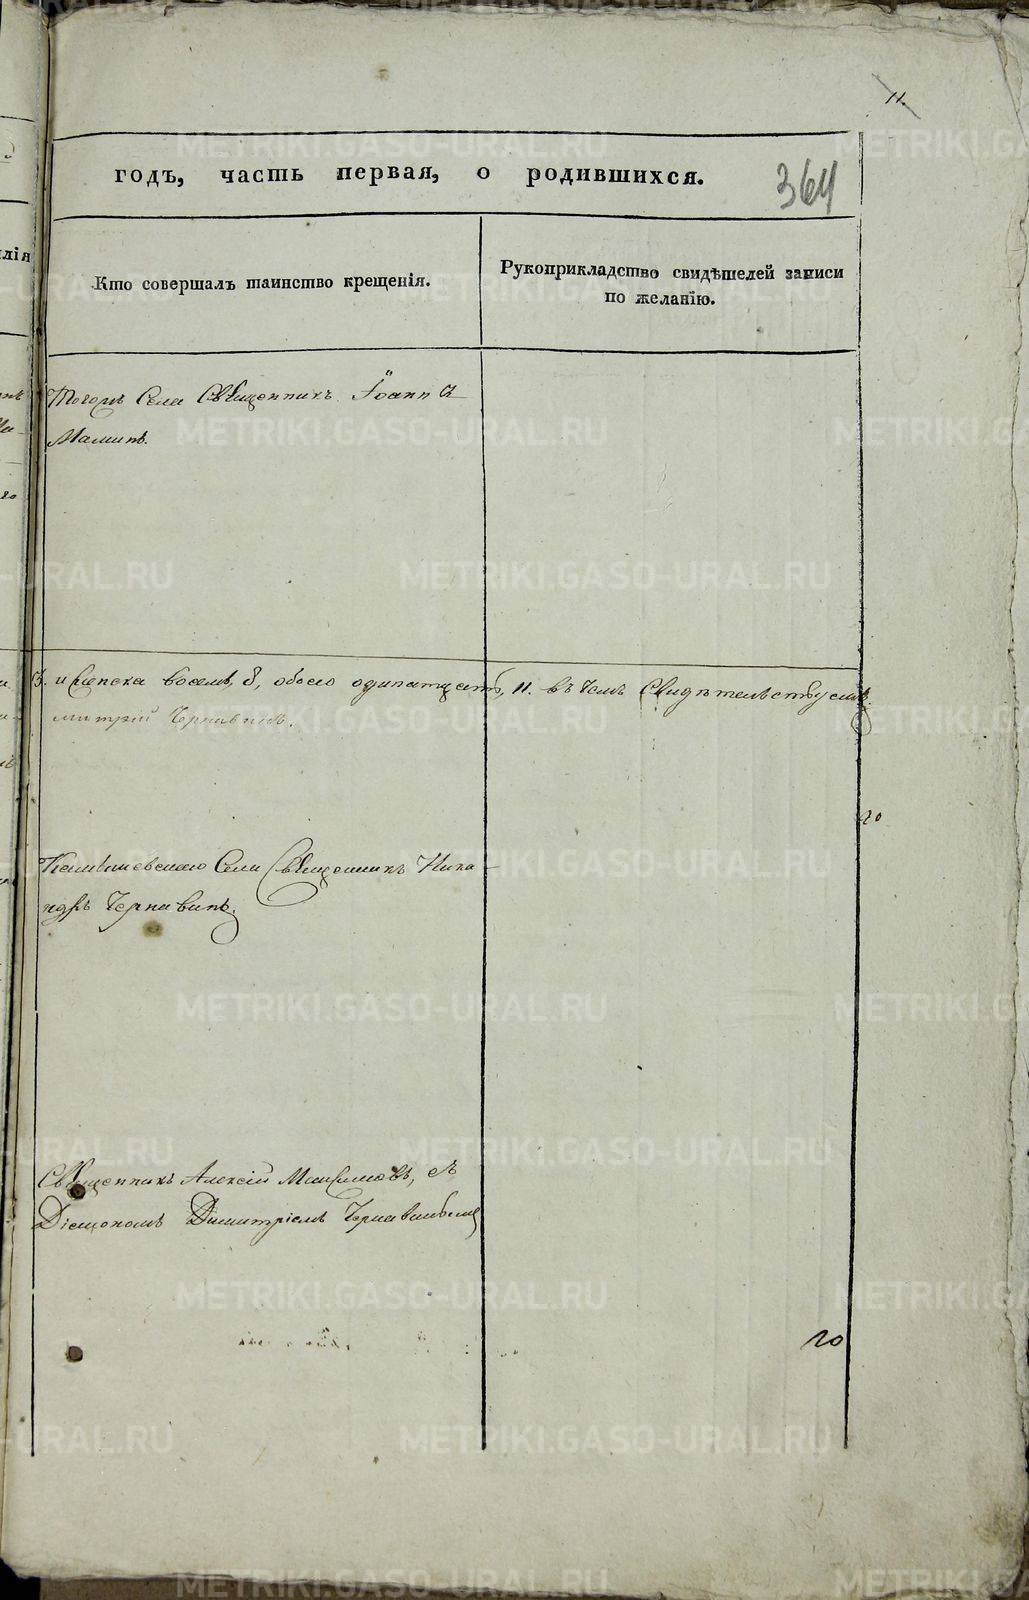 11.
годъ, часть первая, о родившихся.
364
Кто совершалъ таинство крещенія.
Рукоприкладство свидѣтелей записи
по желанію.
Тогожъ Села Священникъ Іоаннъ
Маминъ.
3. и женска восемь, 8, обоего одинатцать, 11. въ чемъ свидѣтельствуемъ.
митрій Чернавинъ.
20
Села Священникъ Ника-
ндръ Чернавинъ.
Священникъ Алексій съ
Діакономъ Димитріемъ Чернавинымъ
20
METRIKI.GASO-URAL.RU